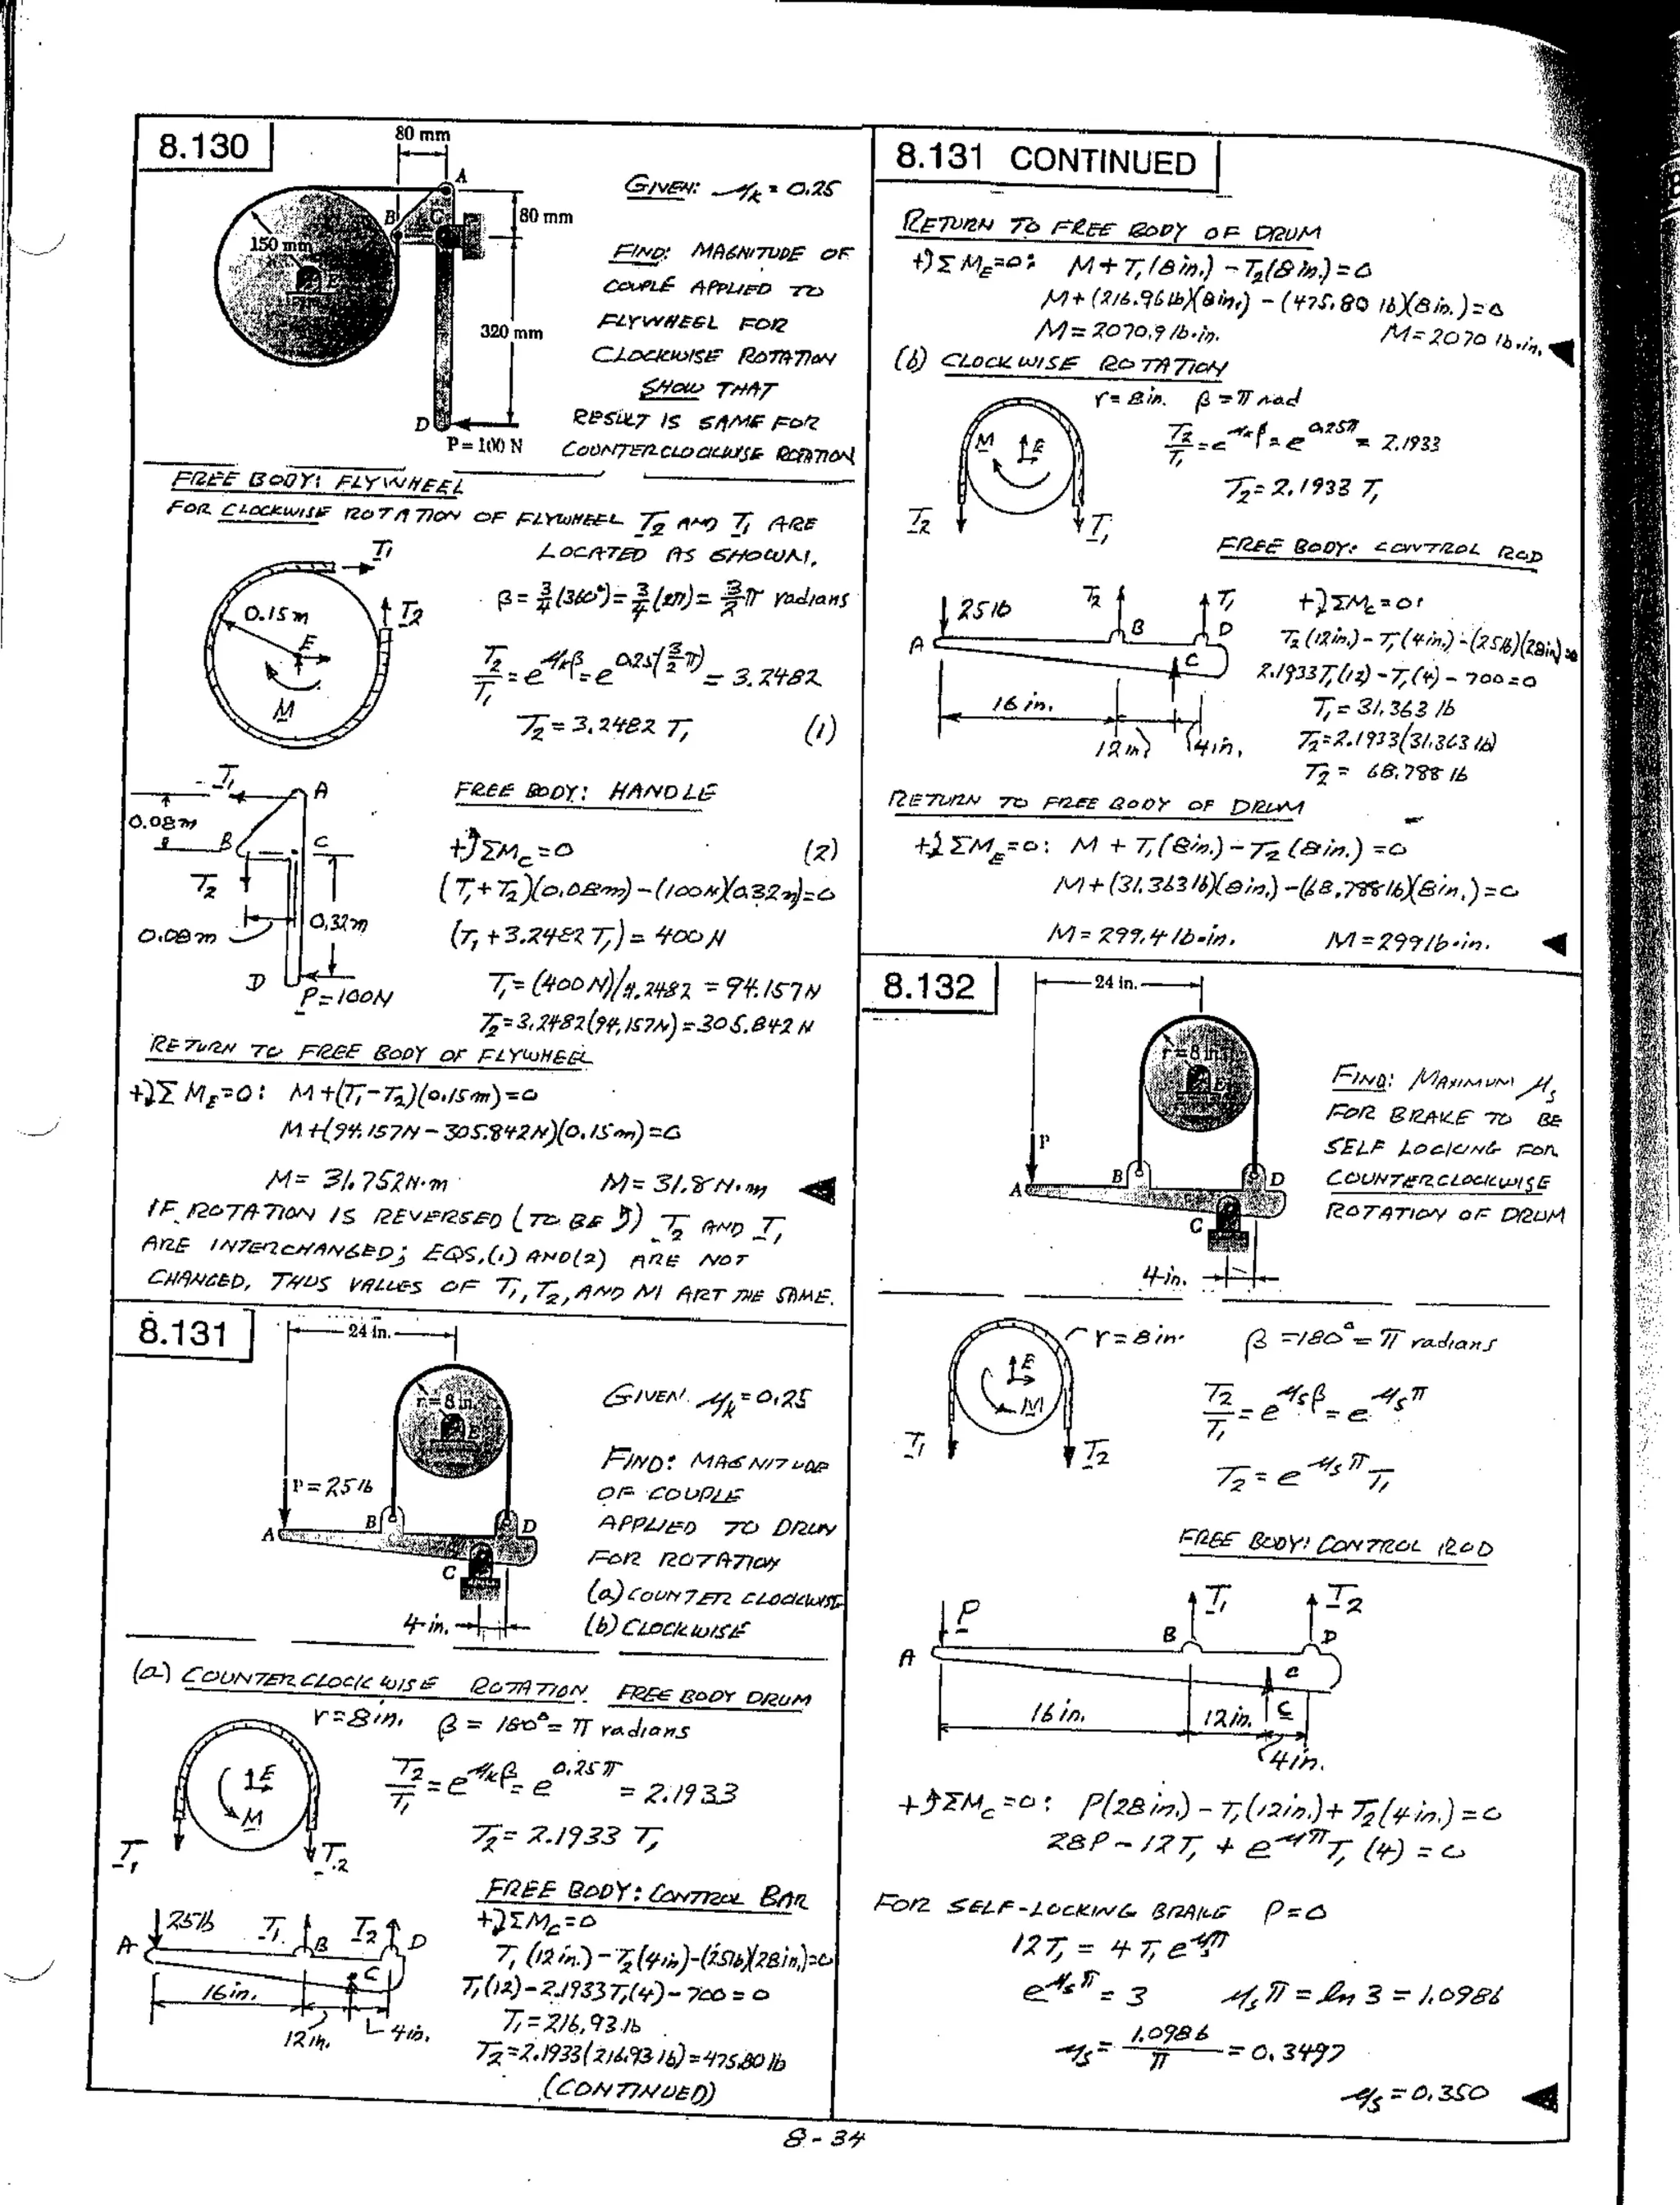 8.130
80 mm
A
B
C
80 mm
150 mm
E
320 mm
D
P = 100 N
GIVEN: μk = 0.25
FIND: MAGNITUDE OF
COUPLE APPLIED TO
FLYWHEEL FOR
CLOCKWISE ROTATION
SHOW THAT
RESULT IS SAME FOR
COUNTERCLOCKWISE ROTATION
FREE BODY: FLYWHEEL
FOR CLOCKWISE ROTATION OF FLYWHEEL T2 AND T1 ARE
LOCATED AS SHOWN.
T1
0.15 m
T2
E
M
β = 3/4 (360°) = 3/4 (2π) = 3/2 π radians
T2/T1 = e^μkβ = e^0.25(3/2 π) = 3.2482
T2 = 3.2482 T1 (1)
T1
A
0.08m
B
C
T2
0.32m
0.08m
D
P=100N
FREE BODY: HANDLE
+↺ΣMC=0 (2)
(T1+T2)(0.08m)-(100N)(0.32m)=0
(T1+3.2482 T1) = 400 N
T1 = (400 N)/4.2482 = 94.157N
T2=3.2482(94.157N)=305.842 N
RETURN TO FREE BODY OF FLYWHEEL
+↻Σ ME=0: M+(T1-T2)(0.15m)=0
M+(94.157N-305.842N)(0.15m)=0
M= 31.752N·m M=31.8 N·m
IF ROTATION IS REVERSED (TO BE ↺) T2 AND T1
ARE INTERCHANGED; EQS.(1) AND(2) ARE NOT
CHANGED, THUS VALUES OF T1, T2, AND M ART THE SAME.
8.131
24 in.
r = 8 in.
E
P = 25 lb
A
B
D
C
4 in.
GIVEN: μk=0.25
FIND: MAGNITUDE
OF COUPLE
APPLIED TO DRUM
FOR ROTATION
(a) COUNTER CLOCKWISE
(b) CLOCKWISE
(a) COUNTERCLOCKWISE ROTATION. FREE BODY DRUM
r=8in. β = 180°= π radians
E
M
T1
T2
T2/T1 = e^μkβ = e^0.25π = 2.1933
T2 = 2.1933 T1
FREE BODY: CONTROL BAR
25lb
T1
T2
A
B
D
C
16in.
12in.
4in.
+↻ΣMC=0
T1 (12 in.)-T2(4in)-(25lb)(28in.)=0
T1(12)-2.1933T1(4)-700=0
T1=216.93 lb
T2=2.1933(216.93 lb)=475.80 lb
(CONTINUED)
8.131 CONTINUED
RETURN TO FREE BODY OF DRUM
+↻ΣME=0: M+T1(8in.)-T2(8in.)=0
M+(216.96lb)(8in.)-(475.80 lb)(8in.)=0
M=2070.9 lb·in. M=2070 lb·in.
(b) CLOCKWISE ROTATION
r=8in. β=π rad
M
E
T2
T1
T2/T1 = e^μkβ = e^0.25π = 2.1933
T2=2.1933 T1
FREE BODY: CONTROL ROD
25lb
T2
T1
A
B
D
C
16 in.
12in
4in.
+↻ΣMC=0:
T2(12in.)-T1(4in.)-(25lb)(28in)=0
2.1933T1(12)-T1(4)-700=0
T1=31.363 lb
T2=2.1933(31.363 lb)
T2= 68.788 lb
RETURN TO FREE BODY OF DRUM
+↻ΣME=0: M + T1(8in.)-T2(8in.) =0
M+(31.363 lb)(8in.)-(68.788lb)(8in.)=0
M=299.4 lb·in. M=299 lb·in.
8.132
24 in.
r=8 in.
E
P
A
B
D
C
4-in.
FIND: MAXIMUM μs
FOR BRAKE TO BE
SELF LOCKING FOR
COUNTERCLOCKWISE
ROTATION OF DRUM
r=8in.
E
M
T1
T2
β =180°=π radians
T2/T1 = e^μsβ = e^μsπ
T2 = e^μsπ T1
FREE BODY: CONTROL ROD
P
T1
T2
A
B
D
C
C
16in.
12in.
4in.
+↺ΣMC=0: P(28in.)-T1(12in.)+T2(4in.)=0
28P-12T1+e^μπT1(4)=0
FOR SELF-LOCKING BRAKE P=0
12T1 = 4T1e^μsπ
e^μsπ = 3 μsπ = ln 3 = 1.0986
μs = 1.0986/π = 0.3497
μs = 0.350
8-34